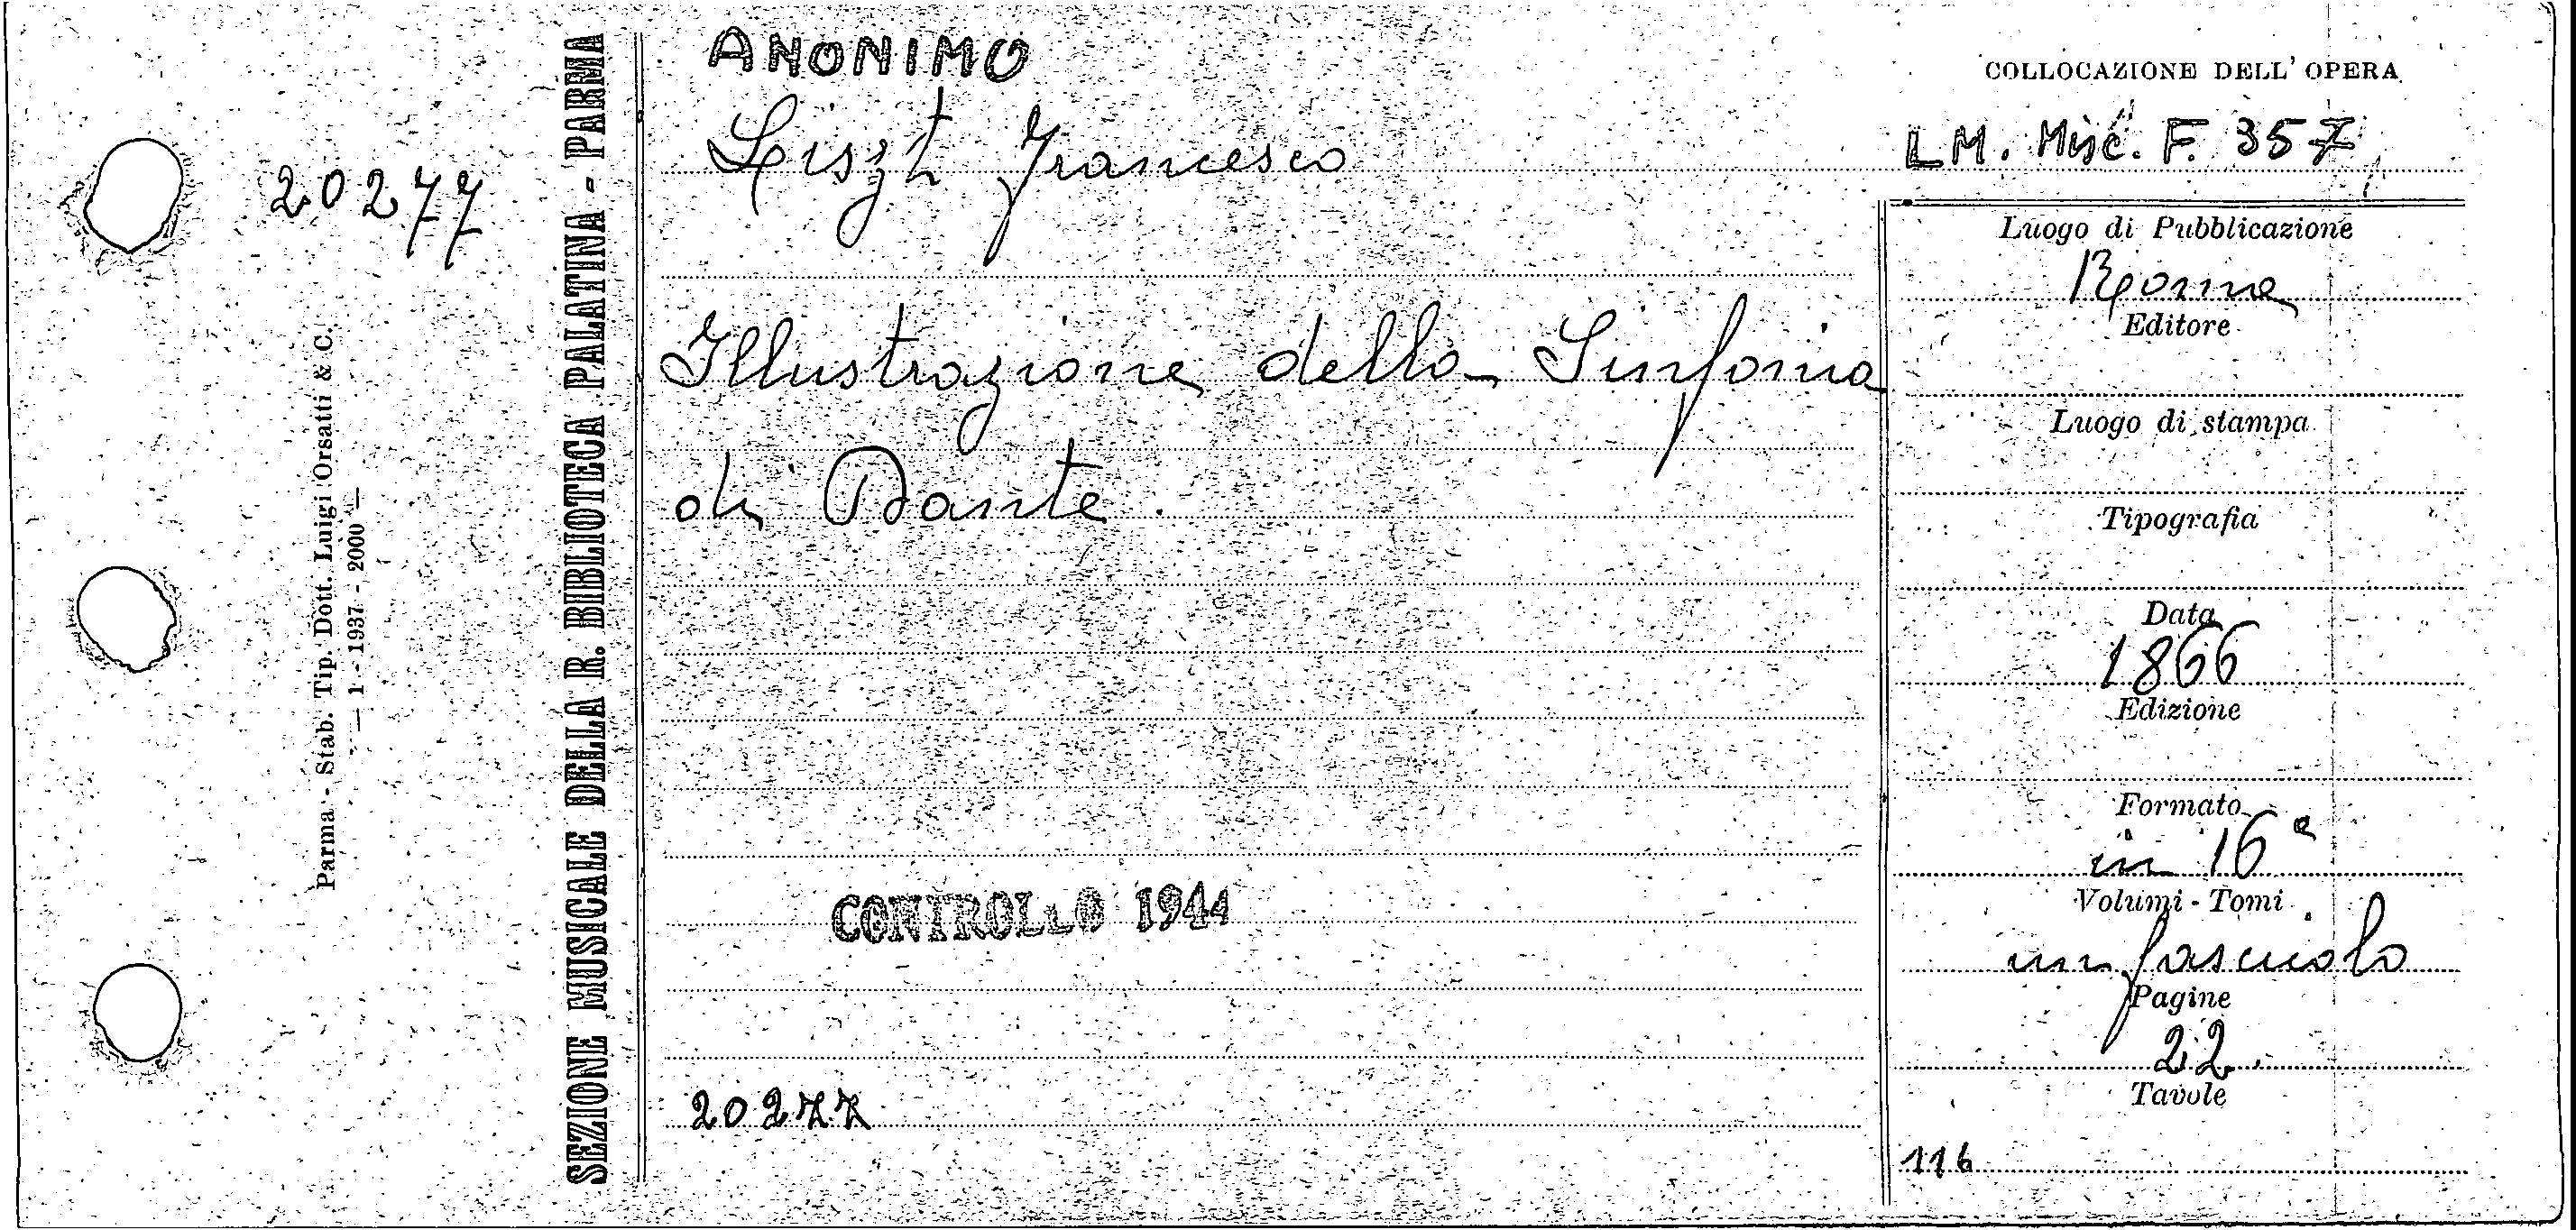 ANONIMO
COLLOCAZIONE DELL' OPERA
Liszt Francesco
LM. Misc. F. 357
20277
Luogo di Pubblicazione
Roma
Editore
Illustrazione della Sinfonia
Luogo di stampa
di Dante.
Tipografia
Data
1866
Edizione
Formato
in 16°
CONTROLLO 1944
Volumi - Tomi
un fascicolo
Pagine
22
Tavole
20277
116
SEZIONE MUSICALE DELLA R. BIBLIOTECA PALATINA - PARMA
Parma - Stab. Tip. Dott. Luigi Orsatti & C.
— 1 - 1937 - 2000 —